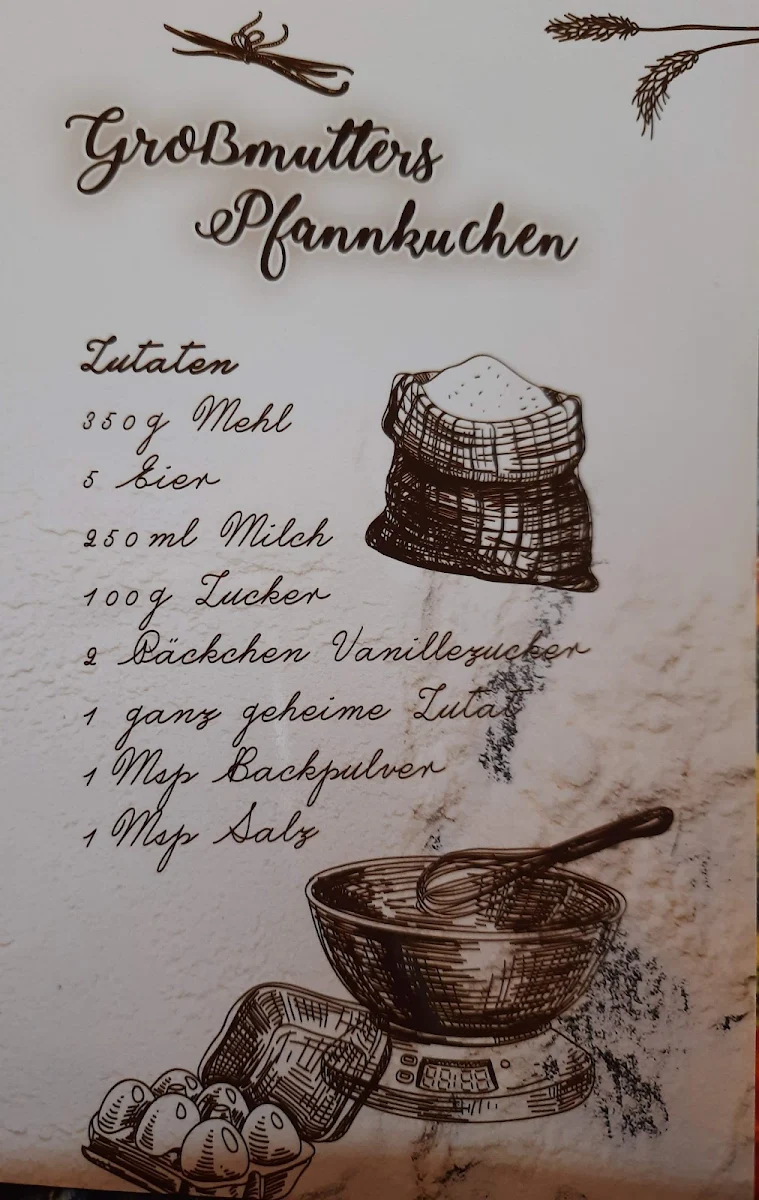 Großmutters
Pfannkuchen
Zutaten
350g Mehl
5 Eier
250ml Milch
100g Zucker
2 Päckchen Vanillezucker
1 ganz geheime Zutat
1 Msp Backpulver
1 Msp Salz
88:88